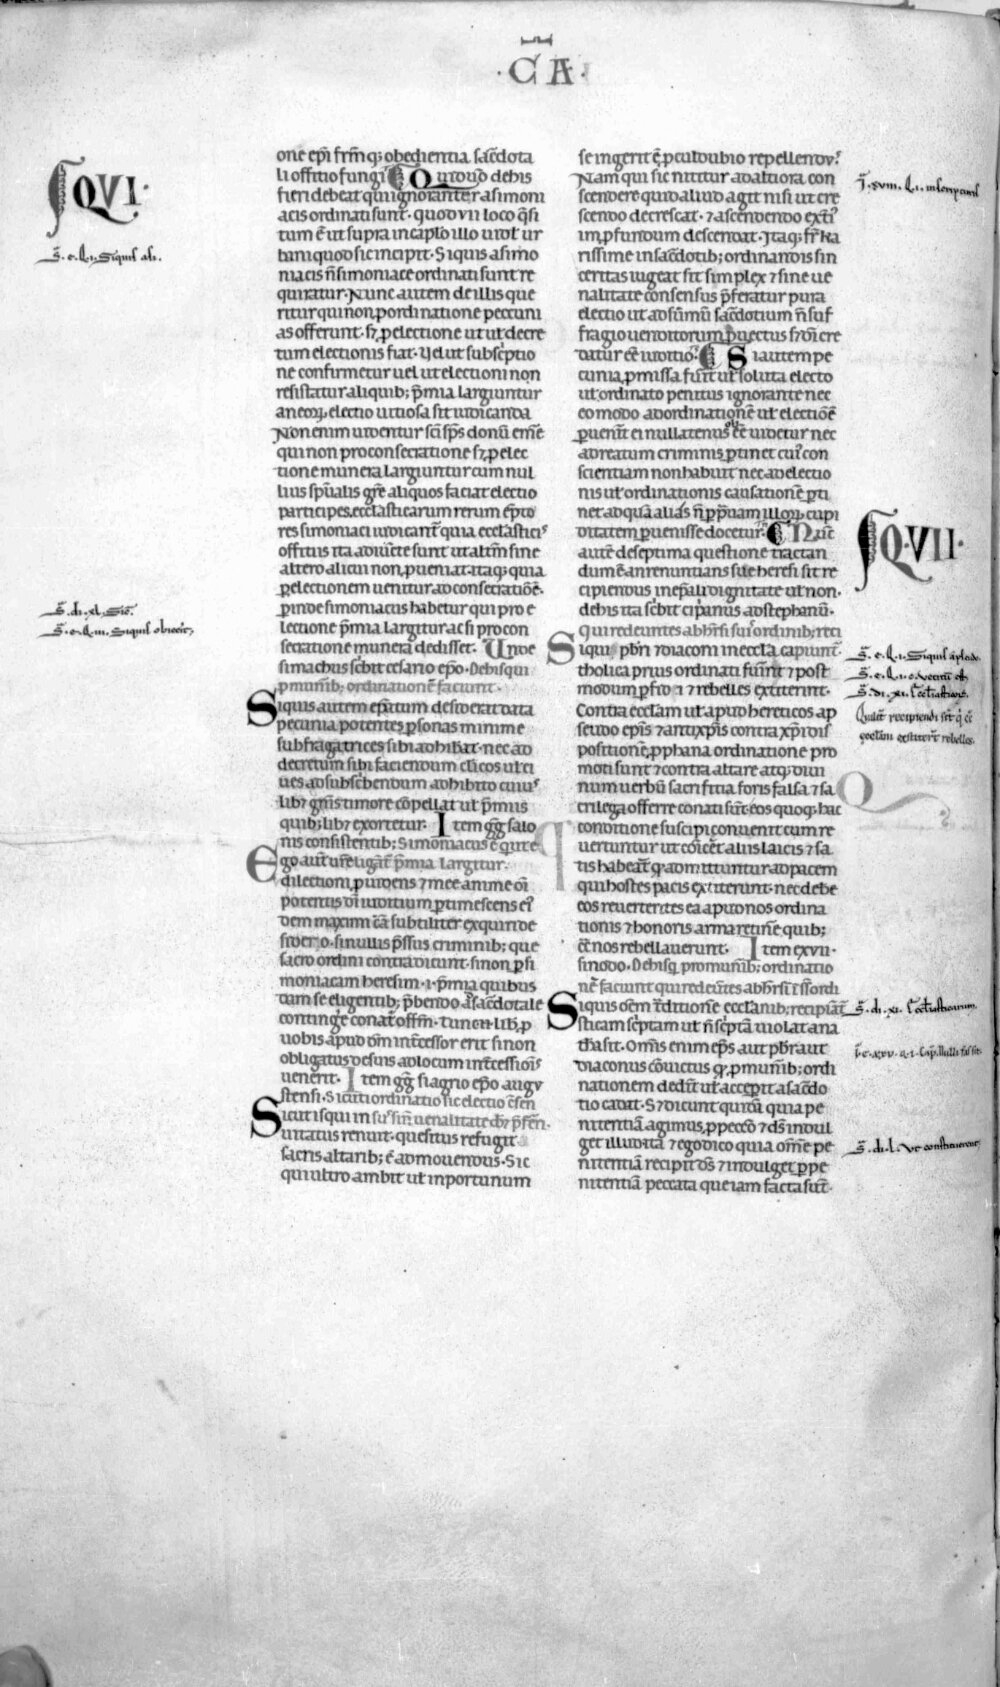 ·CA·
QVI·
S̄. e. q. i. Siquis ali.
one ep̄i frm̄ q; obedientia sac̄dota
li offitio fungi Quid u̓o de his
fieri debeat qui ignoranter a simoni
acis ordinati sunt· quod vii loco q̄si
tum ē ut supra in cap̄lo illo uidel᷒ ur
bani quod sic incipit· Siquis a simo
niacis n̄ simoniace ordinati sunt re
quiratur· Nunc autem de illis que
ritur qui non ꝓ ordinatione peccuni
as offerunt· sꝫ ꝓ electione ut ut decre
tum electionis fiat· uel ut subsc̓ptio
ne confirmetur uel ut electioni non
resistatur aliquib; p̄mia largiuntur
an eoꝝ electio uitiosa sit iudicanda
Non enim uidentur sc̄i sp̄s donū em̄e
qui non pro consecratione sꝫ ꝓ elec
tione munera largiuntur cum nul
lius sp̄ualis gr̄e aliquos faciat electio
participes. ecclasticarum rerum ēpto
res simoniaci iudicant᷒ quia ecclasticis
offitiis ita adiūcte sunt ut altm̄ sine
altero alicui non ꝓueniat· itaq; quia
ꝑ electionem uenitur ad consecrationē·
ꝓinde simoniacus habetur qui pro e
lectione p̄mia largitur ac si pro con
secratione munera dedisset· Unde
simachus sc̓bit cesario ep̄o· De his qui
p munib; ordinationē faciunt·
Siquis autem ep̄atum desiderat data
pecunia potentes ꝑsonas minime
subfragatrices sibi adhibeat· nec ad
decretum sibi faciendum cl̓icos ul᷒ ci
ues ad subsc̓bendum adhibito cuius
lib; gn̄is timore cōpellat ul᷒ p̄miis
quib; lib; exortetur· Item gg̅ salo
nis consistentib; Simoniacus ē qui te
Ego aut̄ ut̄ eligat᷒ p̄mia largitur·
dilectioni ꝓuidens ⁊ mee anime om̄i
potentis dī iuditium ꝑtimescens ei᷒
dem maximi cām subtiliter exquiri de
sidero· si nullis p̄ssus criminib; que
sacro ordini contradicunt· si non ꝑ si
moniacam heresim·i·p̄mia quibus
dam se eligentib; p̄bendo ad sac̄dotale
conting̓e conat᷒ offm̄· tunc n̄ lib; ꝓ
uobis apud dm̄ int̓cessor erit si non
obligatus de suis ad locum int̓cessionis
uenerit· Item gg̅ siagrio ep̄o augu
stensi· Sicuti ordinatio sic electio c̄sen
Sicut is qui in su· sin̄ uenalitate dꝫ p̄ferri·
uitatus renuit· quesitus refugit
sacris altarib; ē admouendus· Sic
qui ultro ambit ul᷒ inportunum
S̄. di. xl. Sic̄.
S̄. e. q. iii. Siquis obiec̓it.
se ingerit ē ꝓculdubio repellendus·
Nam qui sic nititur ad altiora con
scendere quid aliud agit nisi ut cre
scendo decrescat· ⁊ ascendendo ext̓i᷒
im ꝓfundum descendat· Itaq; fr̄ ka
rissime in sac̄dotib; ordinandis sin
ceritas uigeat sit simplex ⁊ sine ue
nalitate consensus p̄feratur pura
electio ut ad sūmū sac̄dotium n̄ suf
fragio uenditorum ꝓuectus sꝫ dī cre
datur eē iuditio· Si autem pe
cunia ꝓmissa fu̓it ul᷒ soluta electo
ul᷒ ordinato penitus ignorante nec
eo modo ad ordinationē ul᷒ electionē
ꝑuen̓it ei nullatenus obeē uidetur nec
ad reatum criminis ꝑtinet cui᷒ con
scientiam non habuit nec ad electio
nis ul᷒ ordinationis causationē ꝑti
net ad quā alias n̄ p̄ p̄uam illoꝝ cupi
ditatem ꝑuenisse docetur· Nūc
autē de septima questione tractan
dum ē an renuntians sue heresi sit re
cipiendus in ep̄ali dignitate ul᷒ non·
de his ita sc̓bit cip̓anus ad stephanū·
Qui redeuntes ab h̓rsi suis ordinib; reci
Siqui pb̓ri ⁊ diaconi in eccl̄a capiunt᷒·
tholica prius ordinati fu̓int ⁊ post
modum ꝑfidi ⁊ rebelles extiterint·
Contra eccl̄am ul᷒ apud hereticos ap
seudo ep̄is ⁊ antixp̄is contra xp̄i dis
positionē ꝓphana ordinatione pro
moti sunt ⁊ contra altare atq; diui
num u̓erbū sacrifitia foris falsa ⁊ sa
crilega offerre conati sūt· eos quoq; hac
conditione suscipi conuenit cum re
uertuntur ut cōic̄et aliis laicis ⁊ sa
tis habeāt q᷒ admittuntur ad pacem
qui hostes pacis extiterunt· nec debe
eos reuertentes ea apud nos ordina
tionis ⁊ honoris arma retin̄e quib;
c̄t nos rebellauerunt· Item ex vii·
sinodo· De his q ꝓ munib; ordinatio
nē faciunt qui redeūtes ab h̓rsi ī s̄s ordi
Siquis oēm t̓ditionē eccl̄anib; recipiāt᷒
sticam sc̓ptam ul᷒ n̄ sc̓ptā uiolat ana
th̄a sit· Om̄is enim ep̄s aut pb̓r aut
diaconus cōuictus q᷒ ꝓ munib; ordi
nationem ded̓it ul᷒ accep̓it a sac̄do
tio cadit· Sꝫ dicunt quidā quia pe
nitentiā agimus ꝓ peccō ⁊ ds̄ indul
get illud ita ⁊ ego dico quia om̄e pe
nitentiā recipit ds̄ ⁊ indulget ꝑ pe
nitentiā peccata que iam facta sūt·
QVII·
S̄. e. q. i. Siquis ap̄lade.
S̄. di. xi. Eccl̄asticarū.
Qualit̓ recipiendi sīt q̄ c̄t
eccl̄am extiter̄t rebelles.
S̄. di. xi. Eccl̄asticarum.
S̄. di. l. Vt constitueretur